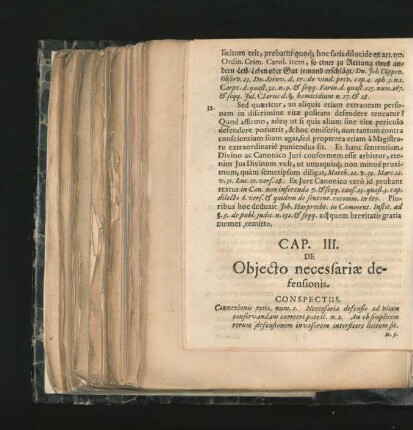 licitum esse, probatur quoq; hoc satis dilucide ex art. 150.
Ordin. Crim. Carol. item, so einer zu Rettung eines an-
dern Leib/Leben oder Gut jemand erschlägt/ Dn. Joh. Cöppen.
Observ. 23. Dn. Struv. d. tr. de vind. priv. cap. 4. aph. 5. n. 1.
Carpz. d. quæst. 32. n. 9. & seqq. Farin. d. quæst. 125. num. 267.
& seqq. Jul. Clarus d. §. homicidium n. 27. & 28.
32. Sed quæritur, an aliquis etiam extraneam perso-
nam in discrimine vitæ positam defendere teneatur?
Quod affirmo, adeo ut si quis alium sine vitæ periculo
defendere potuerit, & hoc omiserit, non tantum contra
conscientiam suam agat, sed propterea etiam à Magistra-
tu extraordinariè puniendus sit. Et hanc sententiam
Divino ac Canonico Juri conformem esse arbitror, ete-
nim Jus Divinum vult, ut unusquisq; non minus proxi-
mum, quàm semetipsum diligat, Matth. 22. v. 39. Marc. 12.
v. 31. Luc. 10. vers. 28. Ex Jure Canonico verò id probant
textus in Can. non inferenda 7. & seqq. caus. 23. quæst. 3. cap.
dilecto 6. vers. & quidem de sentent. excomm. in 6to. Plu-
ribus hoc deduxit Joh. Harpprecht. in Comment. Instit. ad
§. 5. de publ. judic. n. 132. & seqq. ad quem brevitatis gratia
memet remitto.
CAP. III.
DE
Objecto necessariæ de-
fensionis.
CONSPECTUS.
Connexionis ratio, num. 1. Necessaria defensio ad vitam
conservandam exerceri potest. n. 2. An ob simplicem
rerum defensionem invasorem interficere licitum sit.
n. 3.